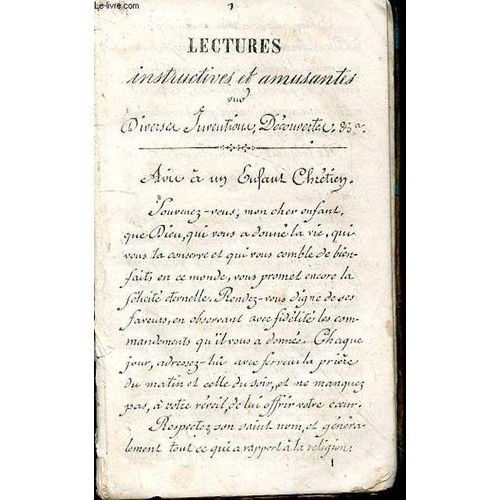 Le-livre.com
LECTURES
instructives et amusantes
sur
Diverses Inventions, Découvertes, &a.
Avis à un Enfant Chrétien.
Souvenez-vous, mon cher enfant,
que Dieu, qui vous a donné la vie, qui
vous la conserve et qui vous comble de bien-
faits en ce monde, vous promet encore la
félicité éternelle. Rendez-vous digne de ses
faveurs, en observant avec fidélité les com-
mandements qu'il vous a donnés. Chaque
jour, adressez-lui avec ferveur la prière
du matin et celle du soir, et ne manquez
pas, à votre réveil, de lui offrir votre cœur.
Respectez son saint nom, et généra-
lement tout ce qui a rapport à la religion;
1